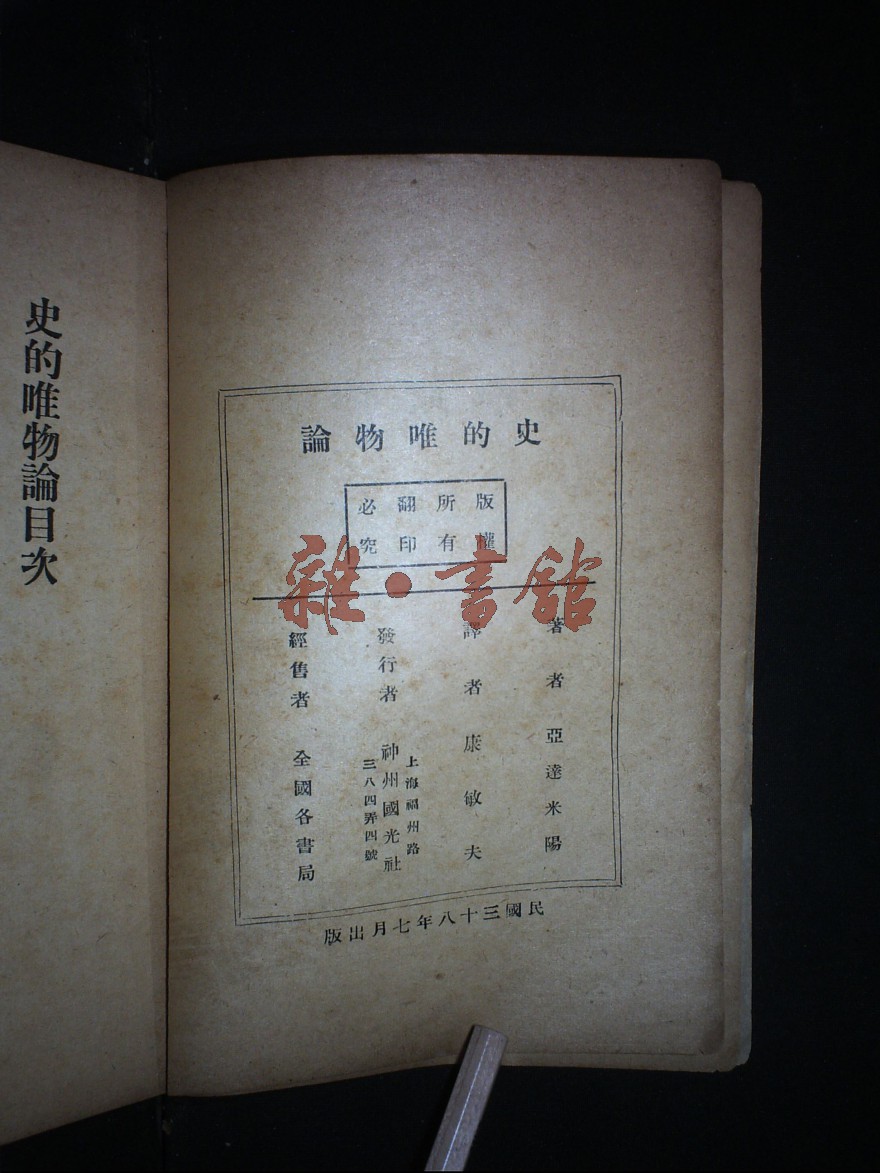 史的唯物論
版權所有翻印必究
著者 亞達米陽
譯者 康敏夫
發行者 神州國光社
上海福州路
三八四弄四號
經售者 全國各書局
民國三十八年七月出版
史的唯物論目次
雜·書館